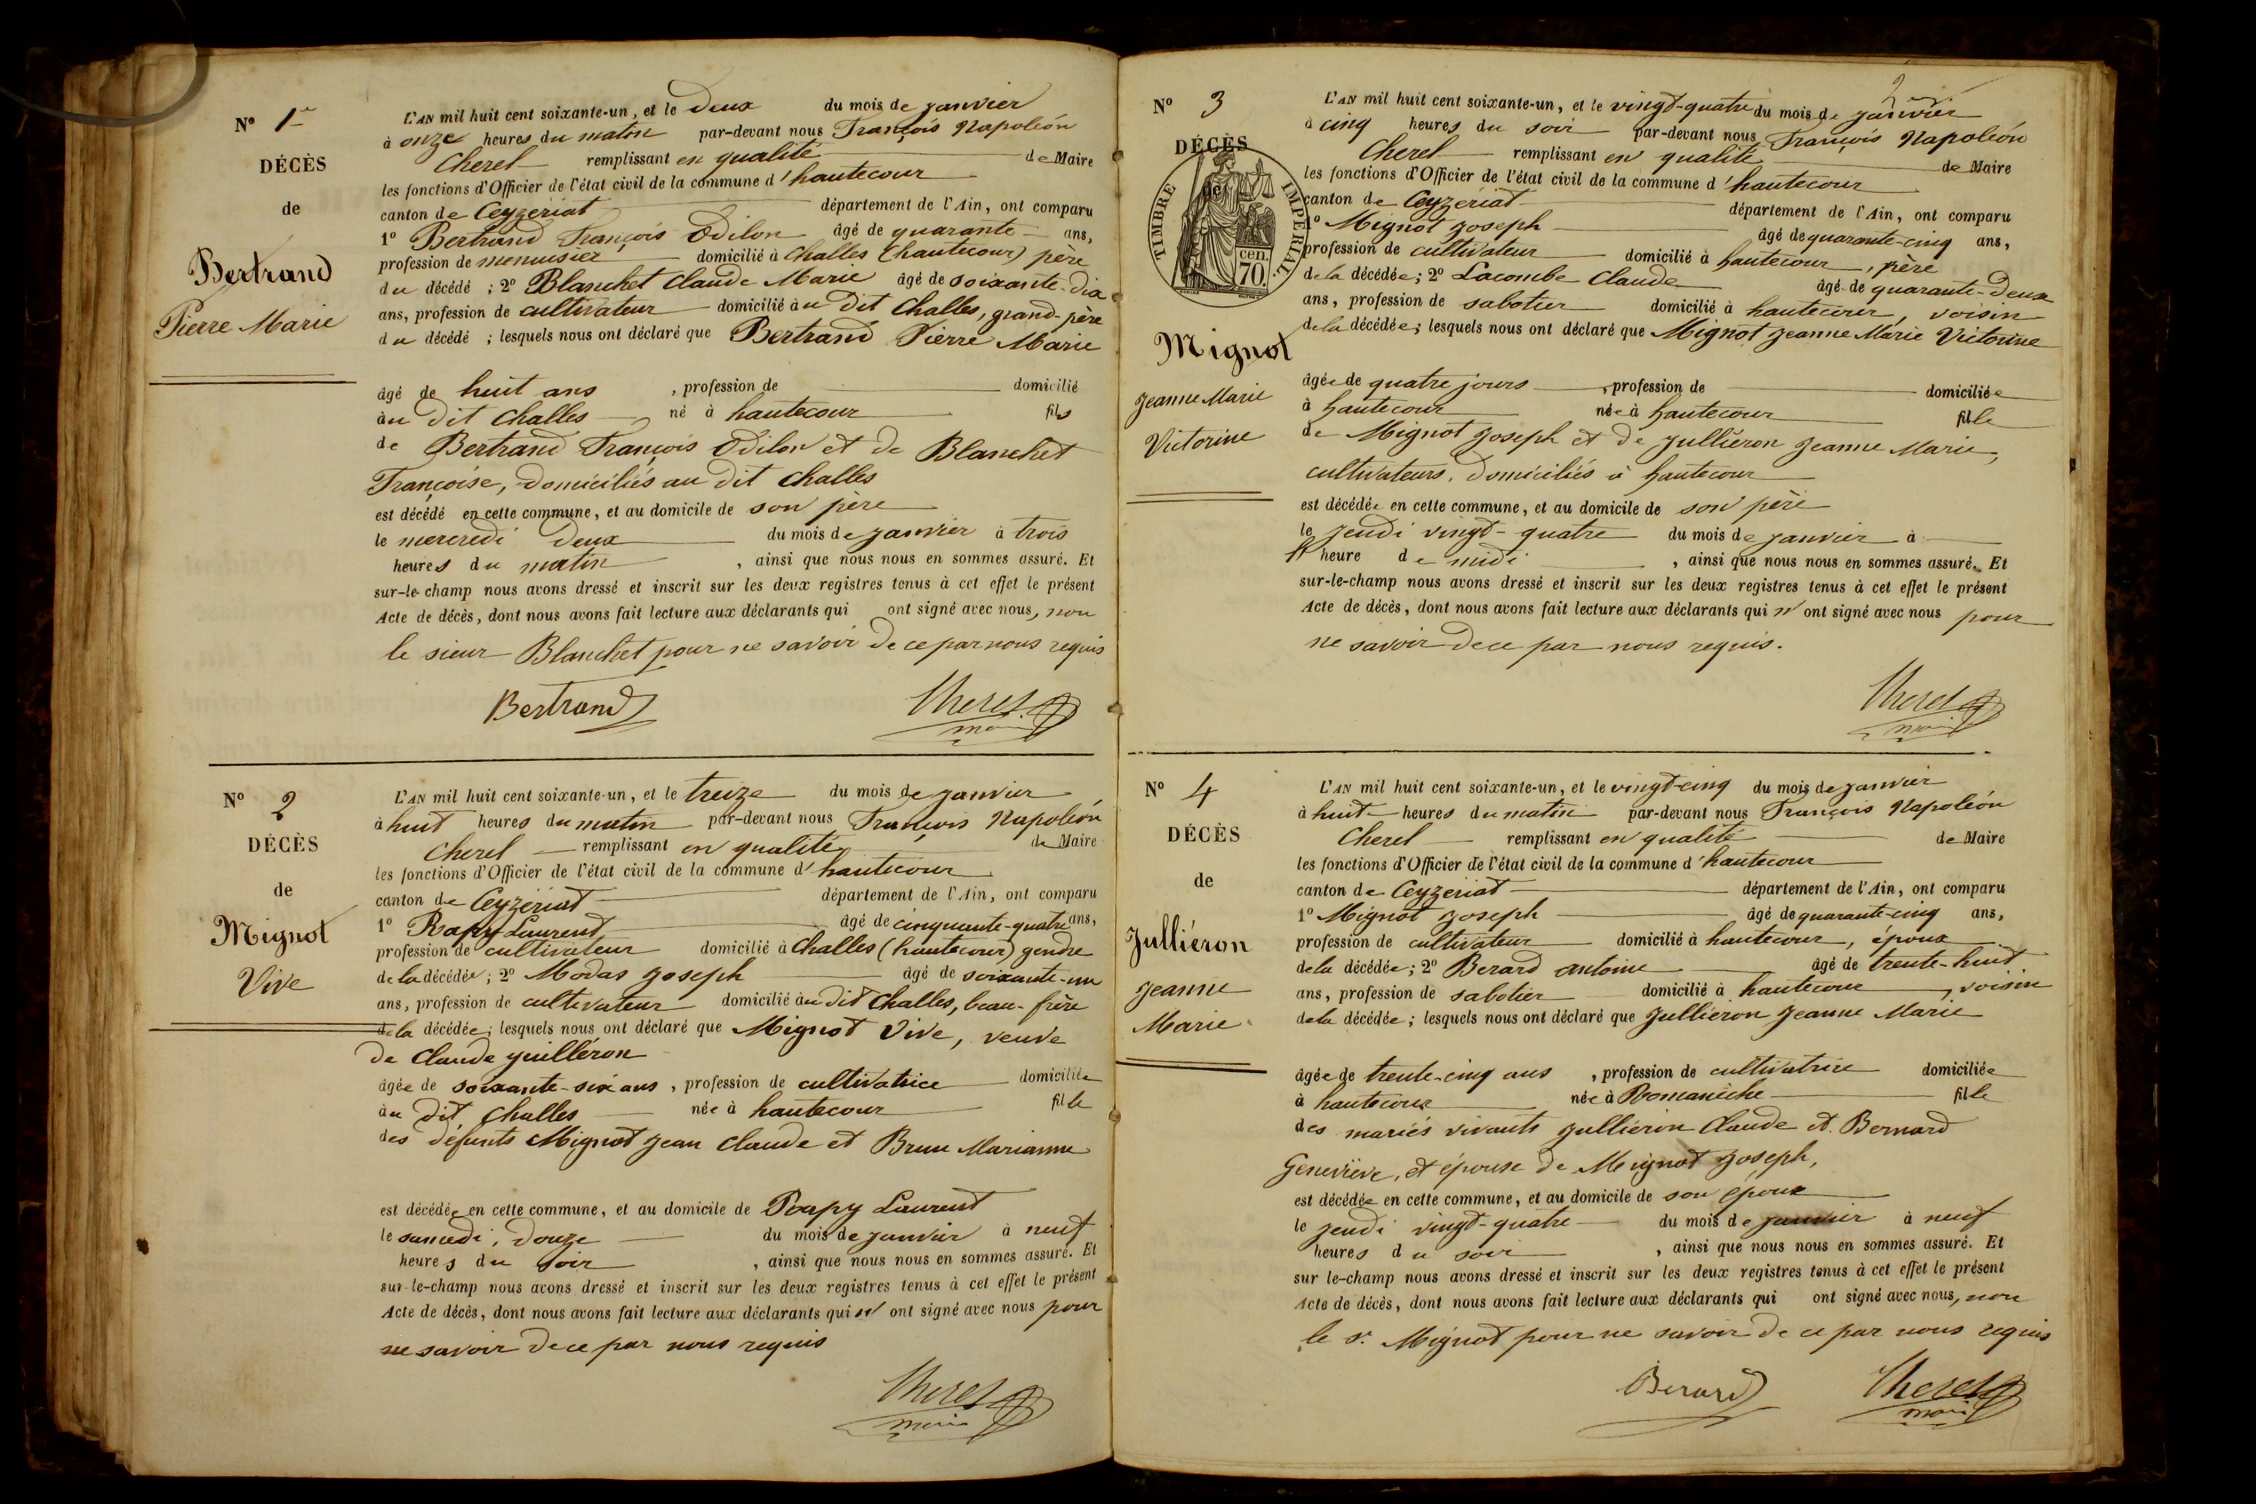 Nº 1er
DÉCÈS
de
Bertrand
Pierre Marie
L'AN mil huit cent soixante-un, et le deux du mois de janvier
à onze heures du matin par-devant nous François Napoléon
Cherel remplissant en qualité de Maire
les fonctions d'Officier de l'état civil de la commune d'hautecour
canton de Ceyzeriat département de l'Ain, ont comparu
1º Bertrand François Odilon âgé de quarante ans,
profession de menuisier domicilié à Challes (hautecour) père
du décédé ; 2º Blanchet Claude Marie âgé de soixante-dix
ans, profession de cultivateur domicilié au dit Challes, grand-père
du décédé ; lesquels nous ont déclaré que Bertrand Pierre Marie
âgé de huit ans , profession de domicilié
au dit Challes né à hautecour fils
de Bertrand François Odilon et de Blanchet
Françoise, domiciliés au dit Challes
est décédé en cette commune, et au domicile de son père
le mercredi deux du mois de janvier à trois
heures du matin , ainsi que nous nous en sommes assuré. Et
sur-le-champ nous avons dressé et inscrit sur les deux registres tenus à cet effet le présent
Acte de décès, dont nous avons fait lecture aux déclarants qui ont signé avec nous, non
le sieur Blanchet pour ne savoir de ce par nous requis
Bertrand Cherel
maire
Nº 2
DÉCÈS
de
Mignot
Vive
L'AN mil huit cent soixante-un, et le treize du mois de janvier
à huit heures du matin par-devant nous François Napoléon
Cherel remplissant en qualité de Maire
les fonctions d'Officier de l'état civil de la commune d'hautecour
canton de Ceyzériat département de l'Ain, ont comparu
1º Laurent âgé de cinquante-quatre ans,
profession de cultivateur domicilié à Challes (hautecour) gendre
de la décédée ; 2º Modas Joseph âgé de soixante-un
ans, profession de cultivateur domicilié au dit Challes, beau-frère
de la décédée ; lesquels nous ont déclaré que Mignot Vive, veuve
de Claude
âgée de soixante-six ans , profession de cultivatrice domiciliée
au dit Challes née à hautecour fille
des défunts Mignot Jean Claude et Brun Marianne
est décédée en cette commune, et au domicile de Laurent
le samedi, douze du mois de janvier à neuf
heures du soir , ainsi que nous nous en sommes assuré. Et
sur-le-champ nous avons dressé et inscrit sur les deux registres tenus à cet effet le présent
Acte de décès, dont nous avons fait lecture aux déclarants qui n'ont signé avec nous pour
ne savoir de ce par nous requis
Cherel
maire
2
Nº 3
DÉCÈS
de
TIMBRE IMPÉRIAL
cen.
70.
Mignot
Jeanne Marie
Victorine
L'AN mil huit cent soixante-un, et le vingt-quatre du mois de janvier
à cinq heures du soir par-devant nous François Napoléon
Cherel remplissant en qualité de Maire
les fonctions d'Officier de l'état civil de la commune d'hautecour
canton de Ceyzériat département de l'Ain, ont comparu
1º Mignot Joseph âgé de quarante-cinq ans,
profession de cultivateur domicilié à hautecour, père
de la décédée ; 2º Lacombe Claude âgé de quarante-deux
ans, profession de sabotier domicilié à hautecour, voisin
de la décédée ; lesquels nous ont déclaré que Mignot Jeanne Marie Victorine
âgée de quatre jours , profession de domiciliée
à hautecour née à hautecour fille
de Mignot Joseph et de Julliéron Jeanne Marie,
cultivateurs, domiciliés à hautecour
est décédée en cette commune, et au domicile de son père
le jeudi vingt-quatre du mois de janvier à
heure de midi , ainsi que nous nous en sommes assuré. Et
sur-le-champ nous avons dressé et inscrit sur les deux registres tenus à cet effet le présent
Acte de décès, dont nous avons fait lecture aux déclarants qui n'ont signé avec nous pour
ne savoir de ce par nous requis.
Cherel
maire
Nº 4
DÉCÈS
de
Julliéron
Jeanne
Marie
L'AN mil huit cent soixante-un, et le vingt-cinq du mois de janvier
à huit heures du matin par-devant nous François Napoléon
Cherel remplissant en qualité de Maire
les fonctions d'Officier de l'état civil de la commune d'hautecour
canton de Ceyzeriat département de l'Ain, ont comparu
1º Mignot Joseph âgé de quarante-cinq ans,
profession de cultivateur domicilié à hautecour, époux
de la décédée ; 2º Berard antoine âgé de trente-huit
ans, profession de sabotier domicilié à hautecour, voisin
de la décédée ; lesquels nous ont déclaré que Julliéron Jeanne Marie
âgée de trente-cinq ans , profession de cultivatrice domiciliée
à hautecour née à Romanèche fille
des mariés vivants Julliéron Claude et Bernard
Geneviève, et épouse de Mignot Joseph,
est décédée en cette commune, et au domicile de son époux
le jeudi vingt-quatre du mois de janvier à neuf
heures du soir , ainsi que nous nous en sommes assuré. Et
sur le-champ nous avons dressé et inscrit sur les deux registres tenus à cet effet le présent
Acte de décès, dont nous avons fait lecture aux déclarants qui ont signé avec nous, non
le Sr. Mignot pour ne savoir de ce par nous requis
Berard Cherel
maire